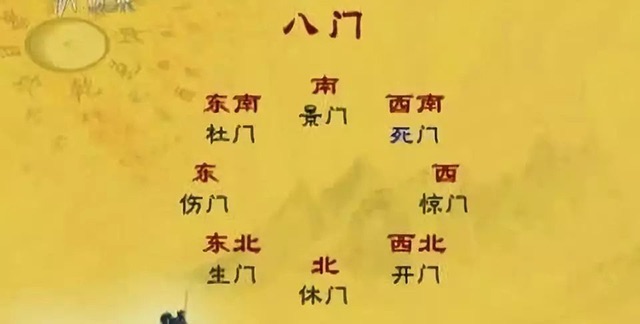 八门
南
景门
东南
杜门
西南
死门
东
伤门
西
惊门
东北
生门
北
休门
西北
开门